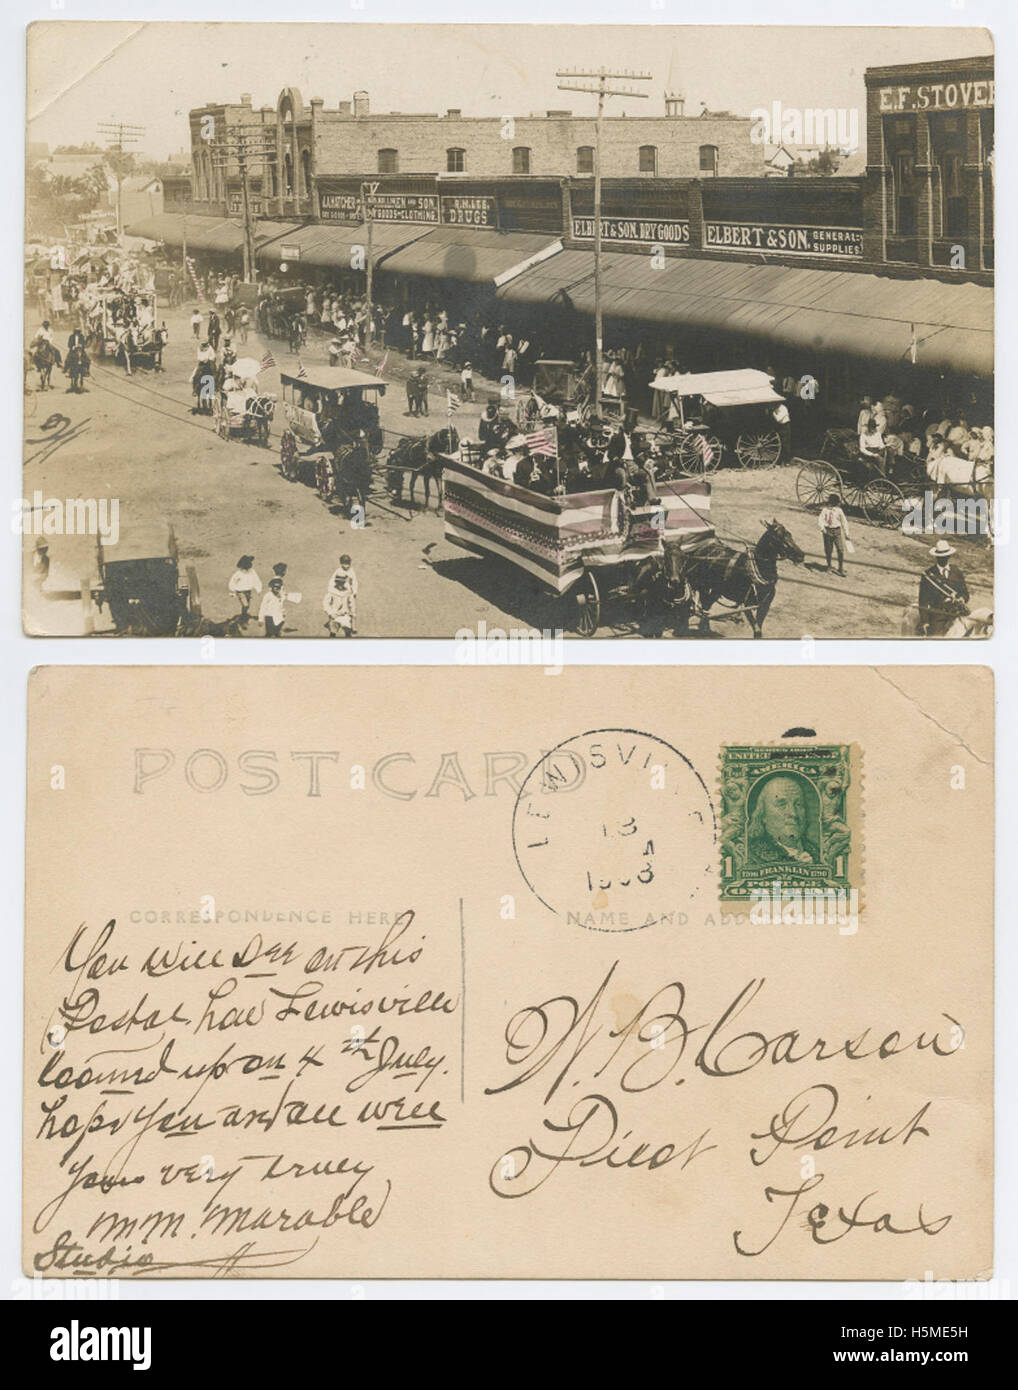 E.F. STOVE
A.A. HATCHER
AND SON.
DRY GOODS-CLOTHING.
DRUGS
ELBERT & SON. DRY GOODS
ELBERT & SON. GENERAL
SUPPLIES
POST CARD
LEWISVILLE
1908
SERIES 1902
UNITED STATES
AMERICA
1 1
1706 FRANKLIN 1790
POSTAGE
ONE CENT
CORRESPONDENCE HERE
NAME AND ADDRESS HERE
You will see on this
Postal how Lewisville
loomed up on 4th July.
hope you are all well
yours very truley
M.M. Marable
Studio
W. B. Carson
Pilot Point
Texas
alamy
a
alamy stock photo
H5ME5H
www.alamy.com